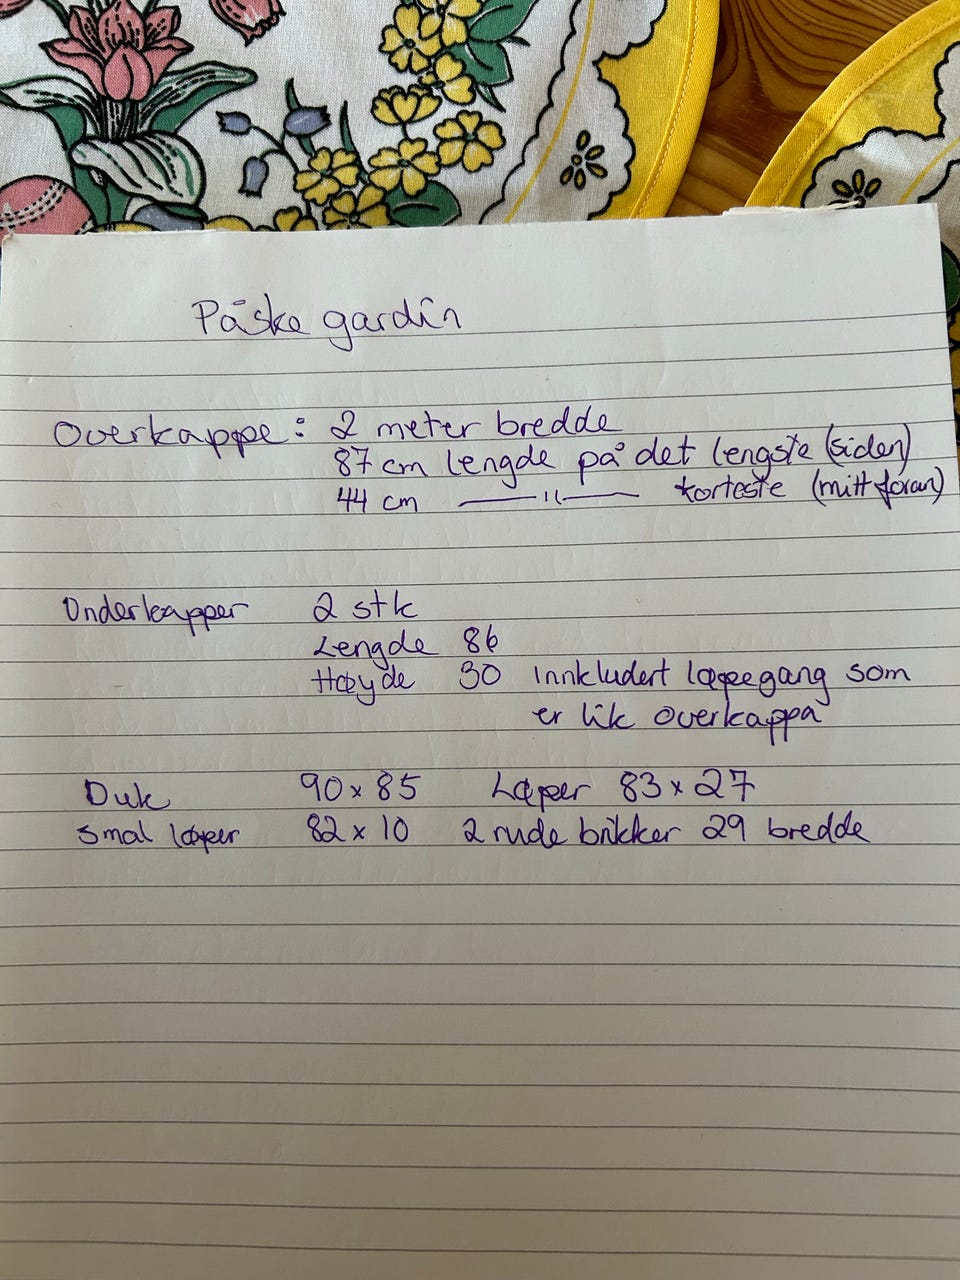 Påske gardin
Overkappe: 2 meter bredde
87 cm lengde på det lengste (siden)
44 cm —— ıı —— korteste (mitt foran)
Underkapper 2 stk
Lengde 86
Høyde 30 innkludert løpegang som
er lik overkappa
Duk 90 x 85 Løper 83 x 27
Smal løper 82 x 10 2 runde brikker 29 bredde